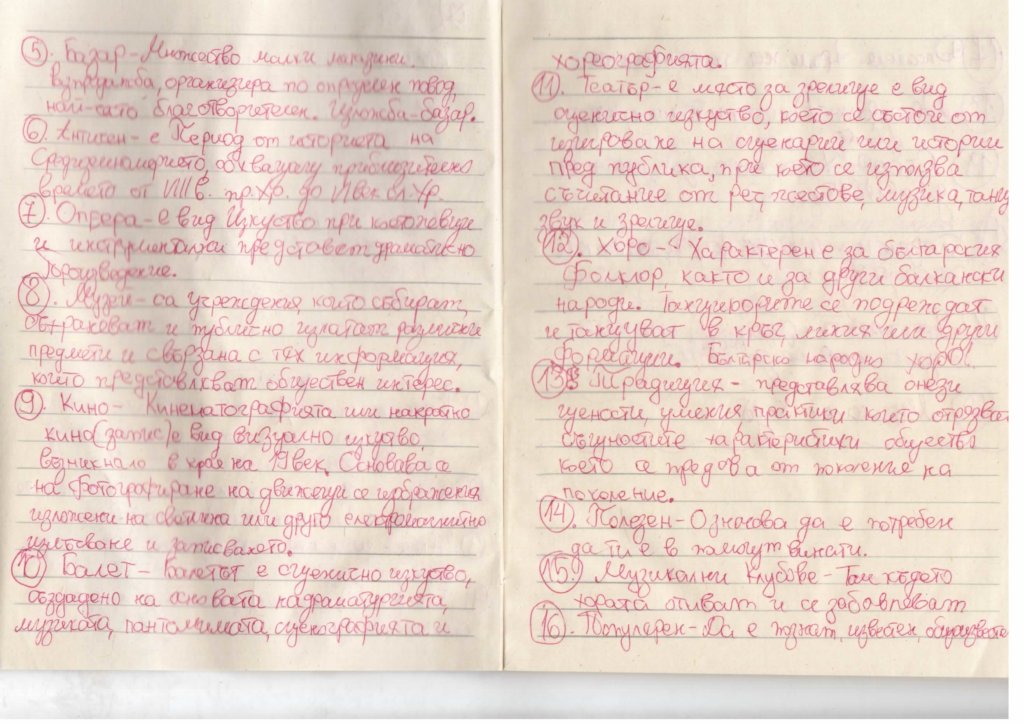 5. Базар - Множество малки магазини.
в продажба, организира по определен повод,
най-често благотворителен. Изложба-базар.
6. Античен - е Период от историята на
Средиземноморието, обхващащ приблизително
времето от VIIIв. пр.Хр. до VI век сл. Хр.
7. Опера - е вид Изкуство при което певци
и инструменталисти представят драматично
произведение.
8. Музей - са учреждения, които събират,
обработват и публично излагат различни
предмети и свързана с тях информация,
които представляват обществен интерес.
9. Кино - Кинематографията или накратко
кино (запис) е вид визуално изкуство,
възникнало в края на 19 век. Основава се
на фотографиране на движещи се изображения
изложени на светлина или друго електромагнитно
излъчване и записването.
10. Балет - Балетът е сценично изкуство,
създадено на основата на драматургията,
музиката, пантомимата, сценографията и
хореографията.
11. Театър - е място за зрелище е вид
сценично изкуство, което се състои от
изиграване на сценарии или истории
пред публика, при което се използва
съчитание от реч, жестове, музика, танц,
звук и зрелище.
12. Хоро - Характерен е за българския
фолклор както и за други балкански
народи. Танцьорите се подреждат
и танцуват в кръг, линия или други
формации. Българско народно хоро.
13. Традиция - представлява онези
ценности, умения, практики които отразяват
същностите характеристики общества
което се предава от поколение на
поколение.
14. Полезен - Означава да е потребен
да ти е в помощ винаги.
15. Музикални клубове - Там където
хората отиват и се забавляват
16. Популярен - Да е познат, известен, общоизвестен